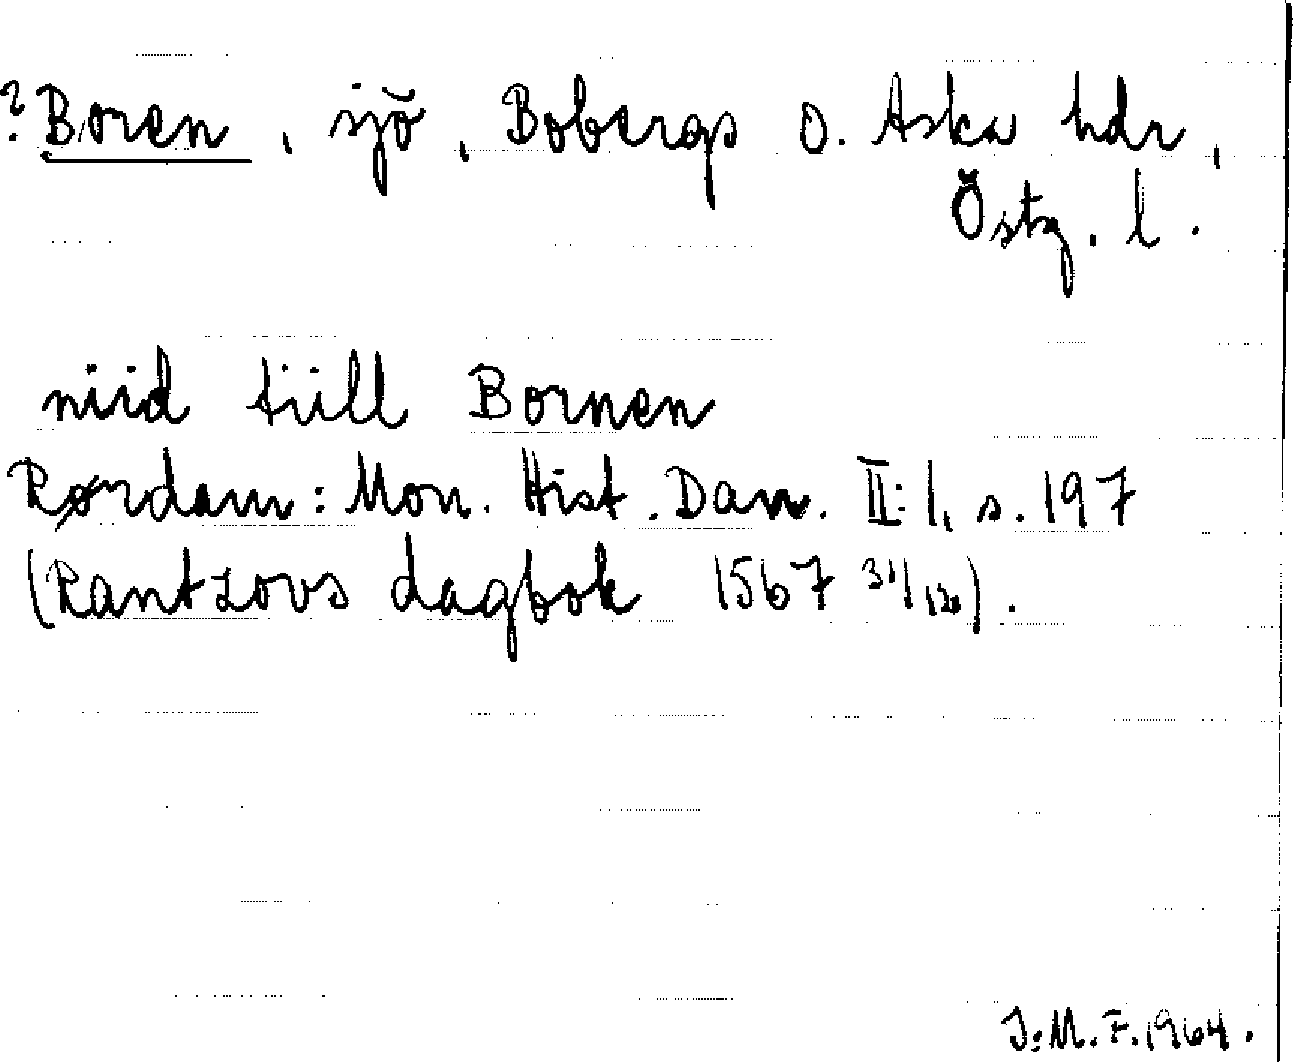 ?Boren, sjö, Bobergs o. Aska hdr,
Östg. l.
niid tiill Bornen
Rørdam: Mon. Hist. Dan. II:1, s. 197
(Rantzovs dagbok 1567 31/120).
J:M.F.1964.